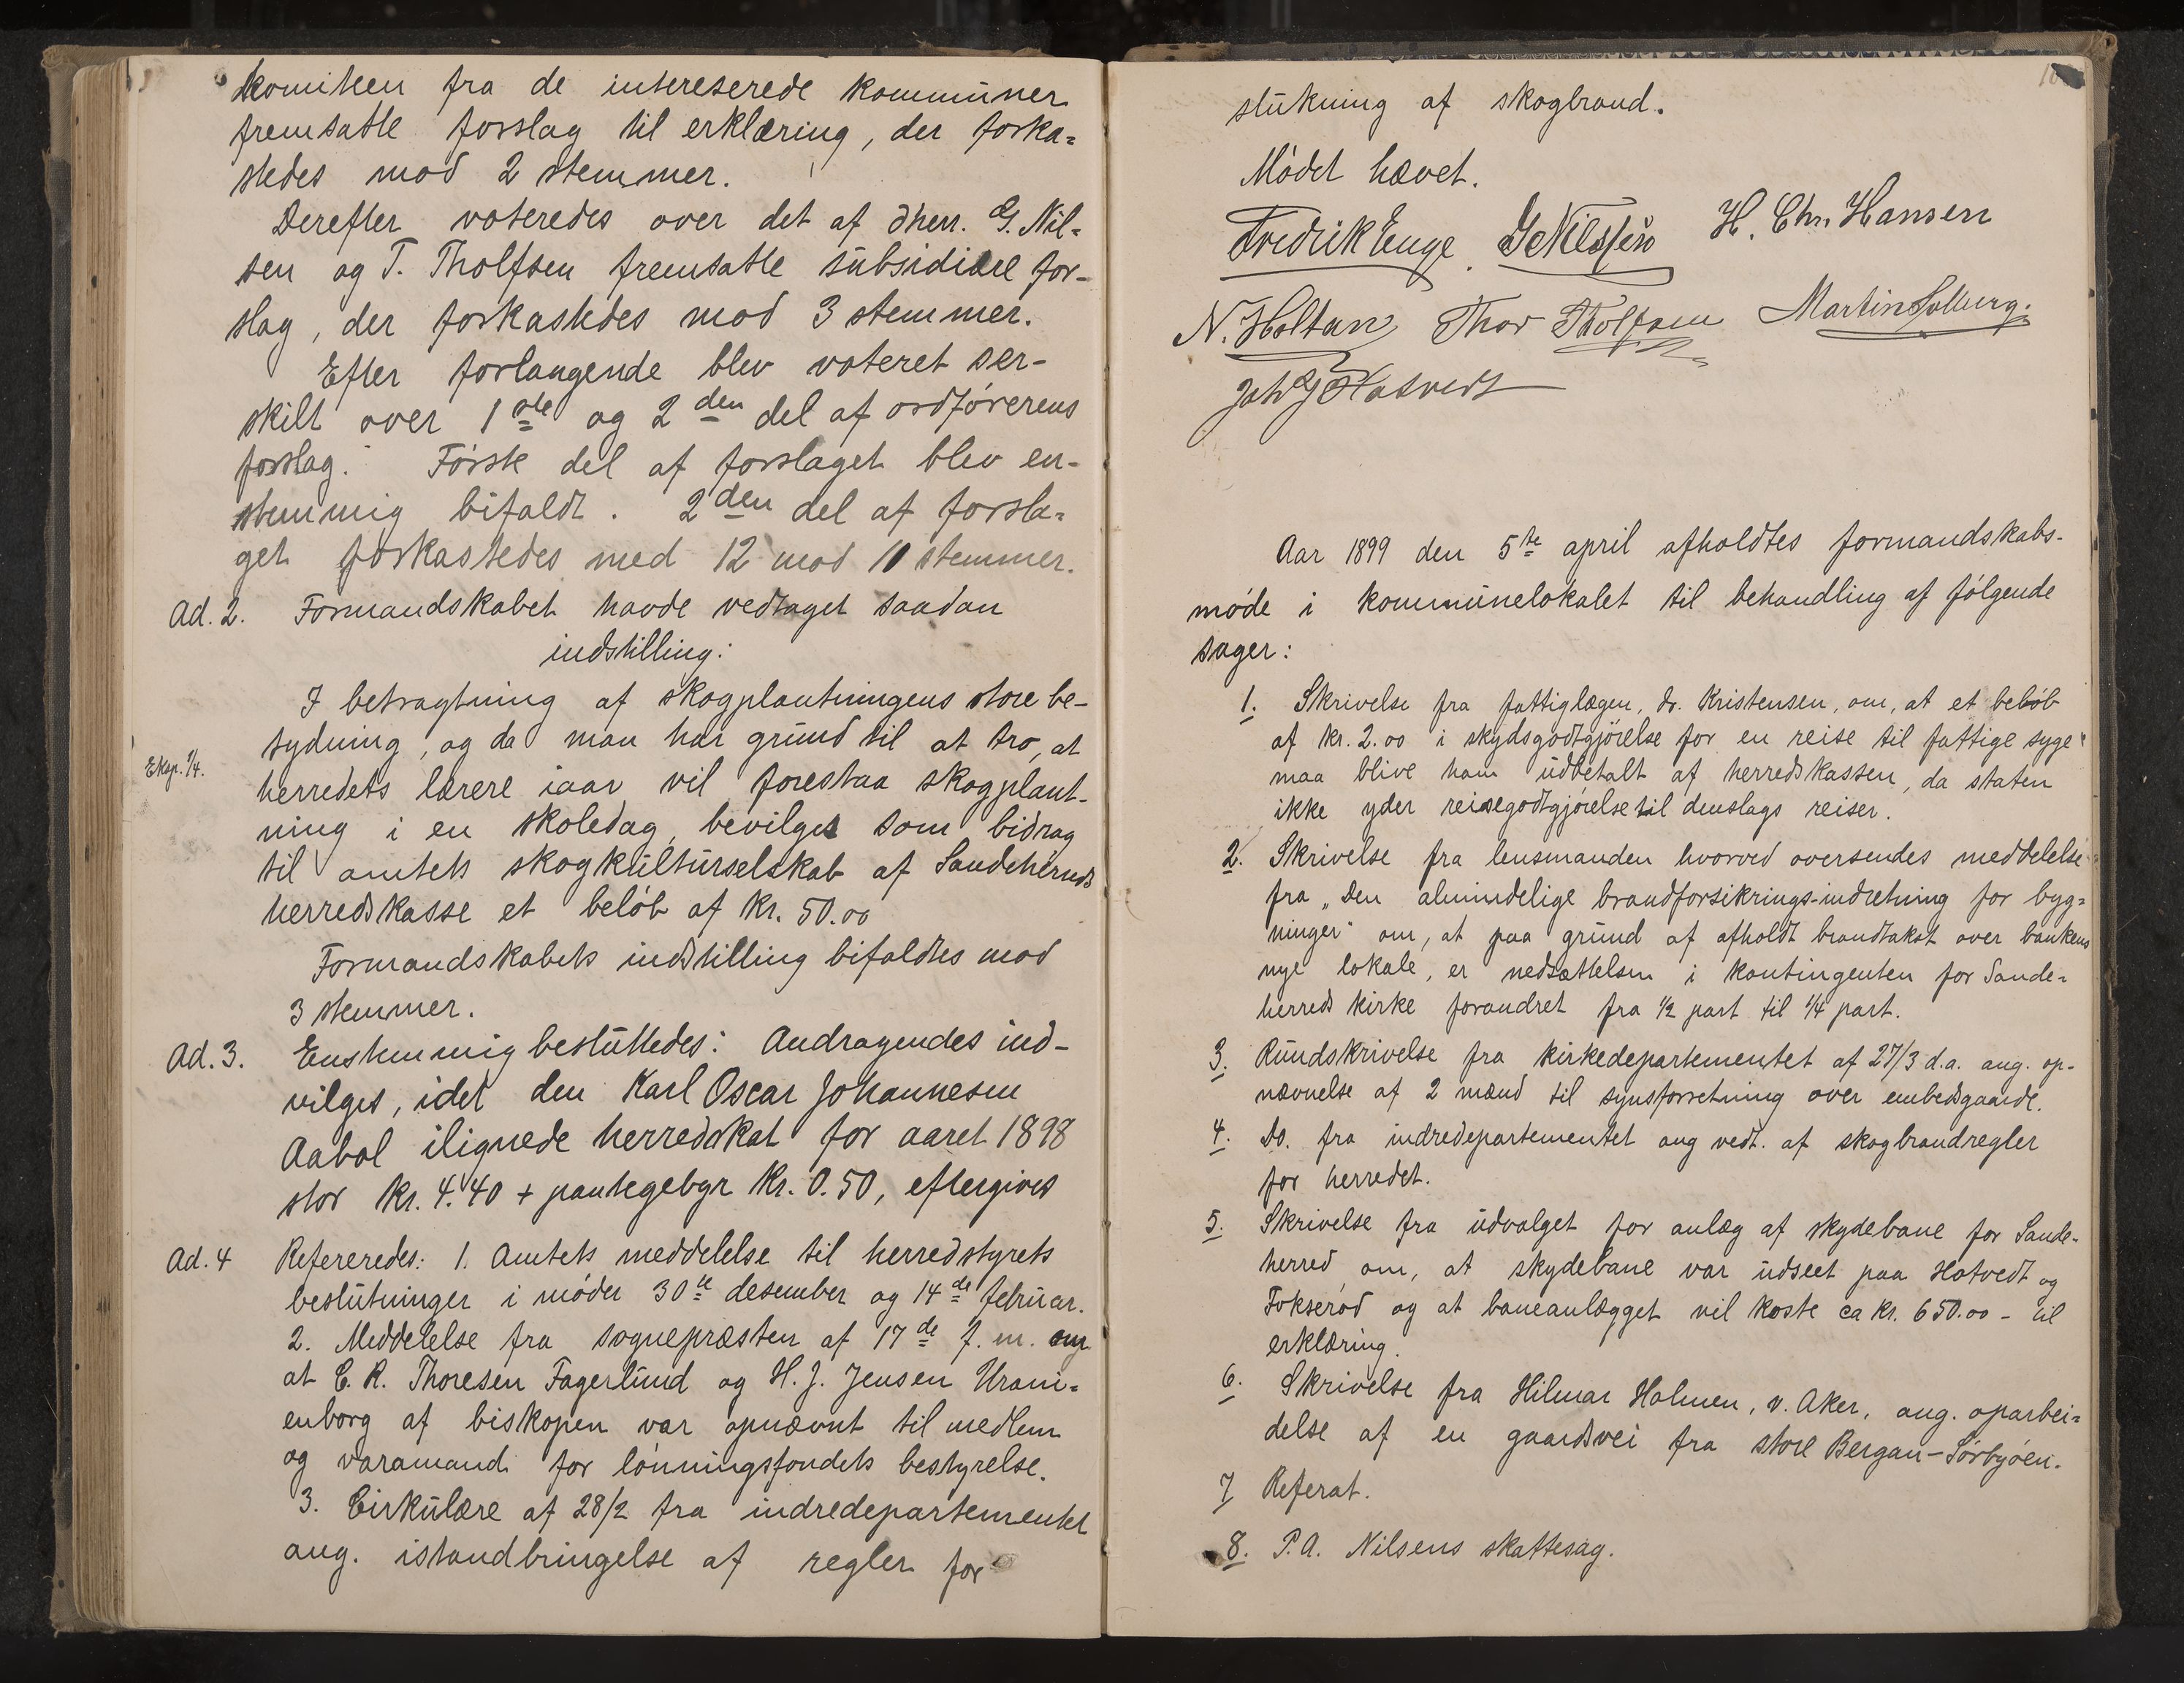 komiteen fra de intereserede kommuner
fremsatte forslag til erklæring, der forka=
stedes mod 2 stemmer.
Derefter voteredes over det af dherr. G. Nil=
sen og T. Tholfsen fremsatte subsidiære for-
slag, der forkastedes mod 3 stemmer.
Efter forlangende blev voteret ser-
skilt over 1ste og 2den del af ordførerens
forslag. Første del af forslaget blev en-
stemmig bifaldt. 2den del af forsla=
get forkastedes med 12 mod 10 stemmer.
Ad. 2. Formandskabet havde vedtaget saadan
indstilling:
I betragtning af skogplantningens store be-
tydning, og da man har grund til at tro, at
Eksp. 7/4.
herredets lærere iaar vil forestaa skogplant-
ning i en skoledag, bevilges som bidrag
til amtets skogkulturselskab af Sandeherreds
herredskasse et beløb af kr. 50.00
Formandskabets indstilling bifaldtes mod
3 stemmer.
Ad. 3. Enstemmig besluttedes: Andragendes ind-
vilges, idet den Karl Oscar Johannesen
Aabol ilignede herredskat for aaret 1898
stor kr. 4.40 + pantegebyr kr. 0.50, eftergives
Ad. 4 Refereredes: 1. Amtets meddelelse til herredstyrets
beslutninger i møder 30te desember og 14de februar.
2. Meddelelse fra sognepræsten af 17de f. m. om
at C. R. Thoresen Fagerlund og H. J. Jensen Urani=
enborg af biskopen var opnævnt til medlem
og varamand for lønningsfondets bestyrelse.
3. Cirkulære af 28/2 fra indredepartementet
ang. istandbringelse af regler for
slukning af skogbrand.
Mødet hævet.
Fredrik Enge. G Nilssen H. Chr. Hansen
N. Holtan Thor Tholfsen Martin Solberg.
Joh G Hotvedt
Aar 1899 den 5te april afholdtes formandskabs-
møde i kommunelokalet til behandling af følgende
sager:
1. Skrivelse fra fattiglægen, dr. Kristensen, om, at et beløb
af kr. 2.00 i skydsgodtgjørelse for en reise til fattige syge
maa blive ham udbetalt af herredskassen, da staten
ikke yder reisegodtgjørelse til denslags reiser.
2. Skrivelse fra lensmanden hvorved oversendes meddelelse
fra „Den almindelige brandforsikrings-indretning for byg=
ninger" om, at paa grund af afholdt brandtakst over bankens
nye lokale, er nedsættelsen i kontingenten for Sande=
herreds kirke forandret fra 1/2 part til 1/4 part.
3. Rundskrivelse fra kirkedepartementet af 27/3 d.a. ang. op-
nævnelse af 2 mænd til synsforretning over embedsgaarde.
4. Do. fra indredepartementet ang vedt. af skogbrandregler
for herredet.
5. Skrivelse fra udvalget for anlæg af skydebane for Sande-
herred om, at skydebane var udseet paa Hotvedt og
Fokserød og at baneanlægget vil koste ca kr. 650.00 - til
erklæring.
6. Skrivelse fra Hilmar Holmen, v. Aker, ang. oparbei=
delse af en gaardsvei fra store Bergan-Sørbyøen.
7 Referat.
8. P.A. Nilsens skattesag.